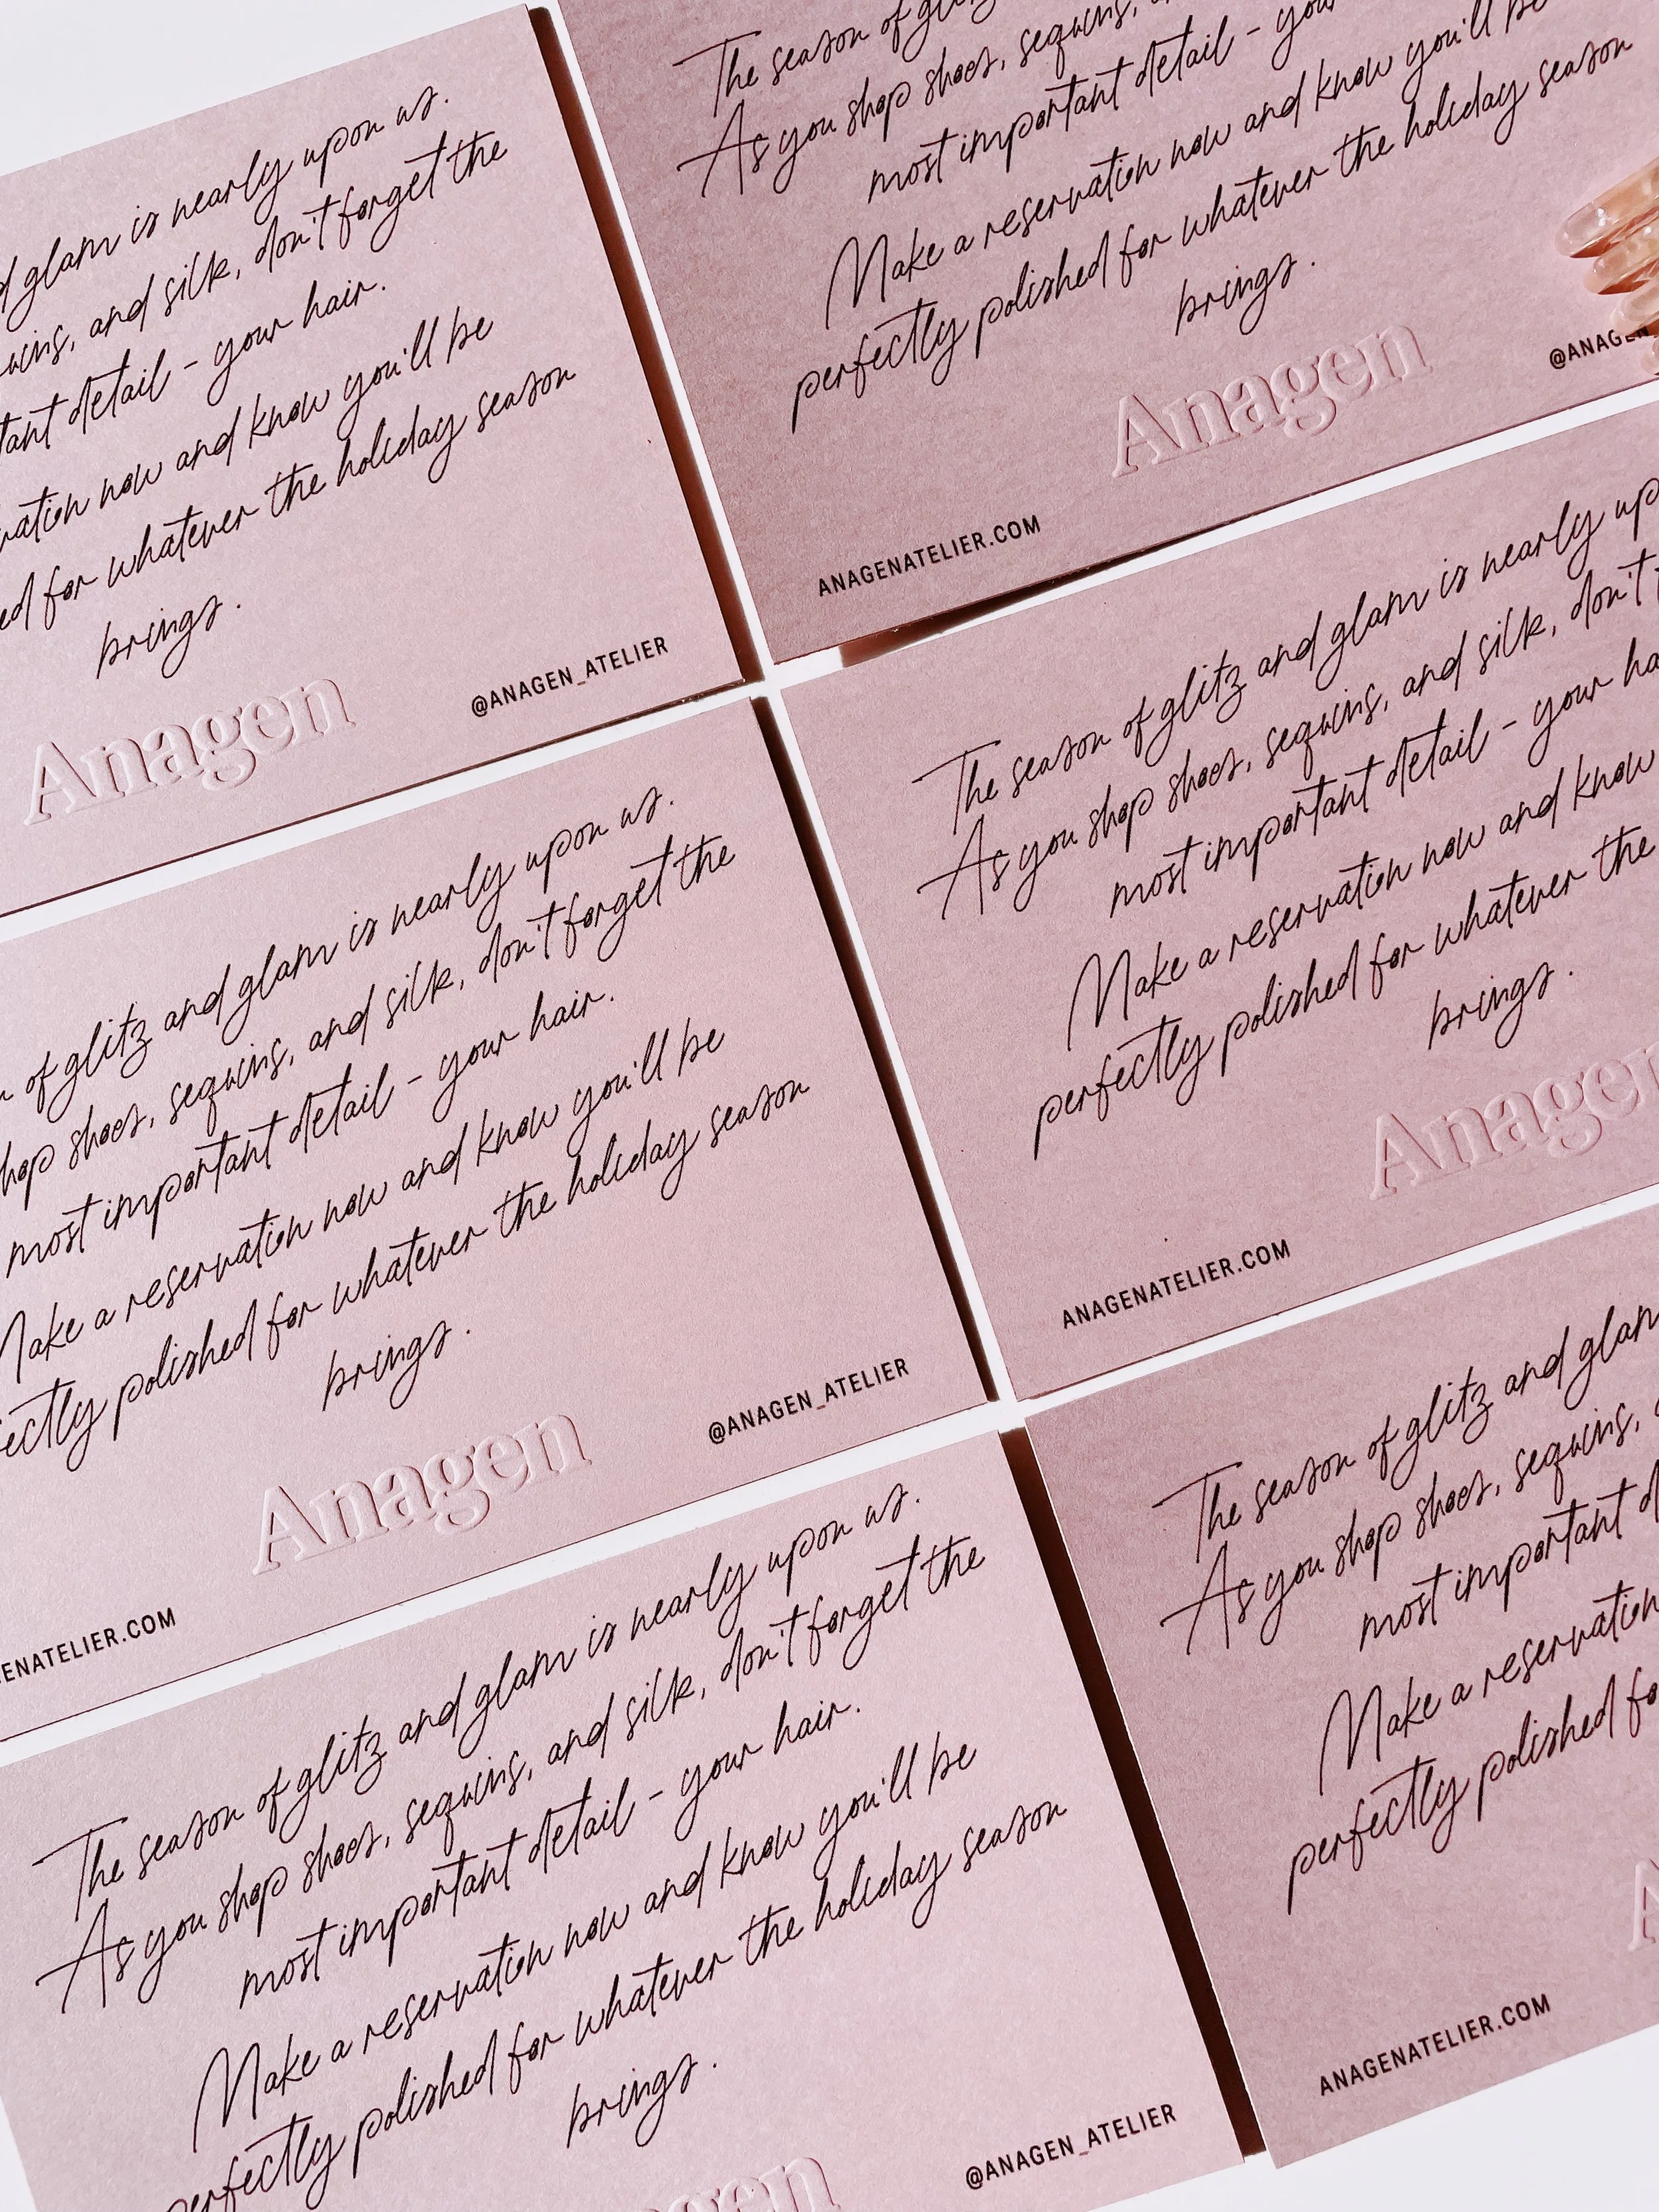 glam is nearly upon us.
and silk, don't forget the
detail - your hair.
now and know you'll be
for whatever the holiday season
brings.
Anagen
@ANAGEN_ATELIER
The season of
As you shop shoes, sequins,
most important detail -
Make a reservation now and know you'll be
perfectly polished for whatever the holiday season
brings.
Anagen
ANAGENATELIER.COM
of glitz and glam is nearly upon us.
shoes, sequins, and silk, don't forget the
most important detail - your hair.
Make a reservation now and know you'll be
polished for whatever the holiday season
brings.
Anagen
@ANAGEN_ATELIER
The season of glitz and glam is nearly
As you shop shoes, sequins, and silk, don't
most important detail - your
Make a reservation now and know
perfectly polished for whatever the
brings.
Anagen
ANAGENATELIER.COM
The season of glitz and glam is nearly upon us.
As you shop shoes, sequins, and silk, don't forget the
most important detail - your hair.
Make a reservation now and know you'll be
perfectly polished for whatever the holiday season
brings.
@ANAGEN_ATELIER
The season of glitz and glam
As you shop shoes, sequins,
most important
Make a reservation
perfectly polished
ANAGENATELIER.COM